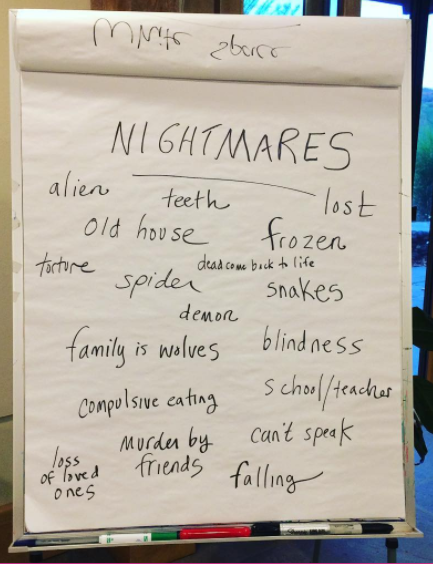 NIGHTMARES
alien
teeth
lost
old house
frozen
torture
dead come back to life
spider
snakes
demon
family is wolves
blindness
compulsive eating
school/teacher
murder by
friends
can't speak
loss
of loved
ones
falling